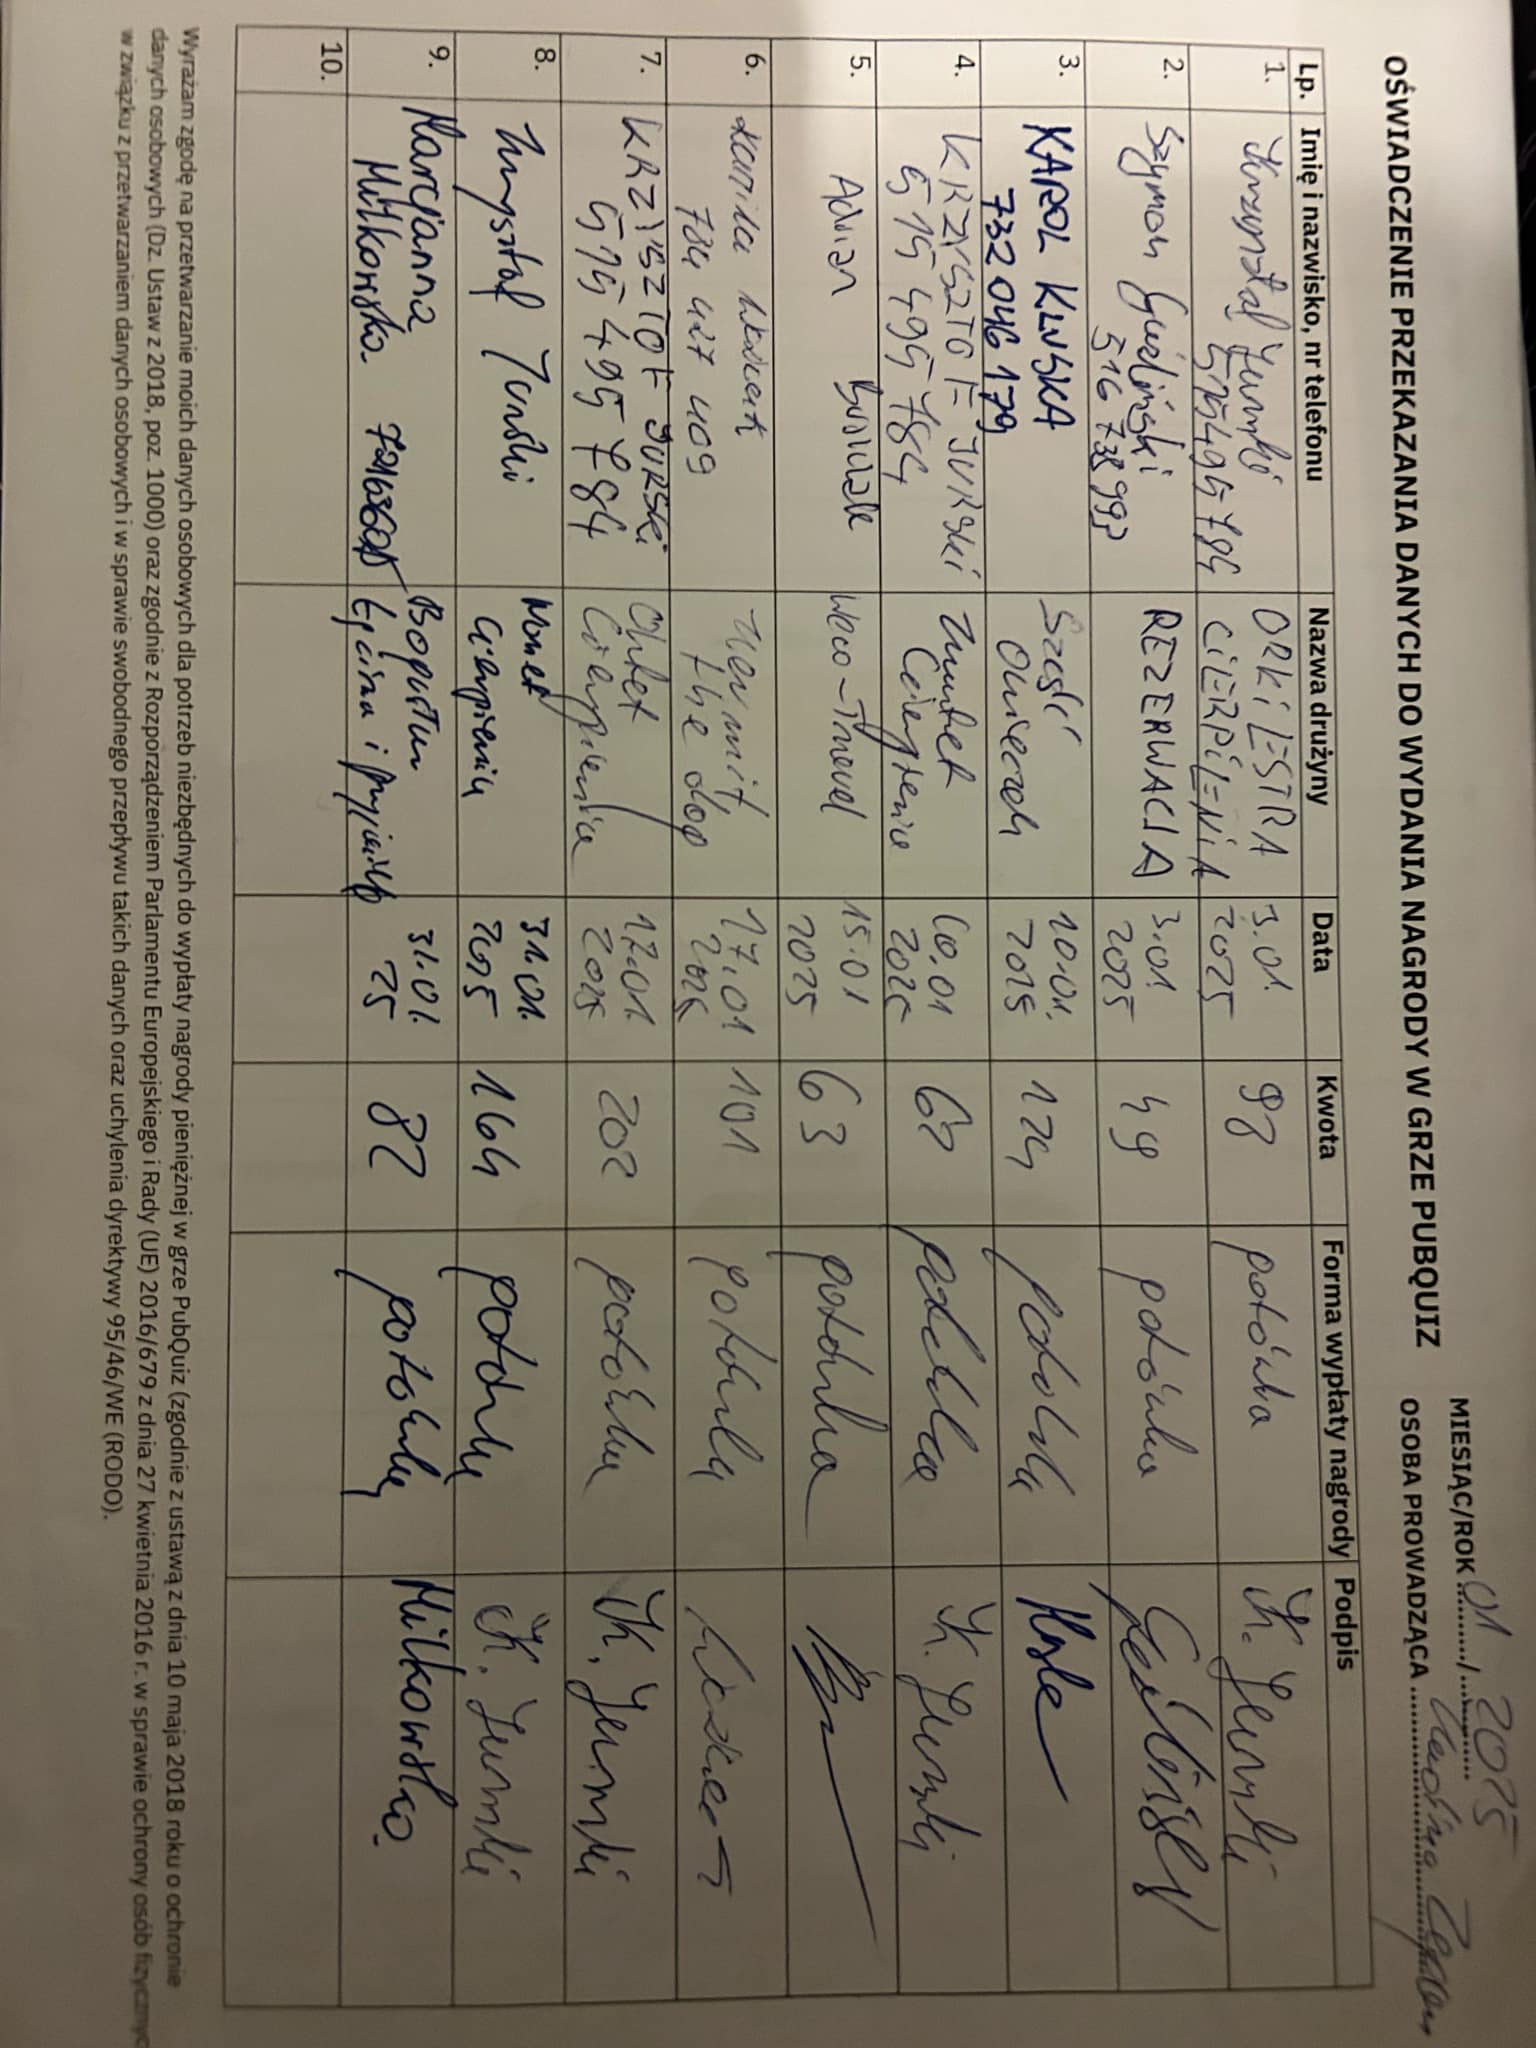 MIESIĄC/ROK 01 / 2025
OŚWIADCZENIE PRZEKAZANIA DANYCH DO WYDANIA NAGRODY W GRZE PUBQUIZ
OSOBA PROWADZĄCA
Lp. Imię i nazwisko, nr telefonu Nazwa drużyny Data Kwota Forma wypłaty nagrody Podpis
1. Krzysztof Jurski ORKIESTRA 3.01. 98 gotówka K. Jurski
515495784 CIERPIENIA 2025
2. Szymon REZERWACJA 3.01 49 gotówka
516 738 993 2025
3. KAROL Sześć 10.01. 124 gotówka
732 046 179 Owieczek 2025
4. KRZYSZTOF JURSKI 10.01 62 gotówka K. Jurski
515 495 784 Cierpienia 2025
5. Adrian 15.01 63 gotówka
2025
6. Kamila 17.01 101 gotówka
784 427 409 the dog 2025
7. KRZYSZTOF JURSKI 17.01. 202 gotówka K. Jurski
515 495 784 Cierpienia 2025
8. Krzysztof Jurski 31.01. 164 gotówka K. Jurski
Cierpienia 2025
9. Marcjanna 31.01. 82 gotówka Miłkowska.
Miłkowska. i przyjaciele 25
10.
Wyrażam zgodę na przetwarzanie moich danych osobowych dla potrzeb niezbędnych do wypłaty nagrody pieniężnej w grze PubQuiz (zgodnie z ustawą z dnia 10 maja 2018 roku o ochronie
danych osobowych (Dz. Ustaw z 2018, poz. 1000) oraz zgodnie z Rozporządzeniem Parlamentu Europejskiego i Rady (UE) 2016/679 z dnia 27 kwietnia 2016 r. w sprawie ochrony osób fizycznyc
w związku z przetwarzaniem danych osobowych i w sprawie swobodnego przepływu takich danych oraz uchylenia dyrektywy 95/46/WE (RODO).